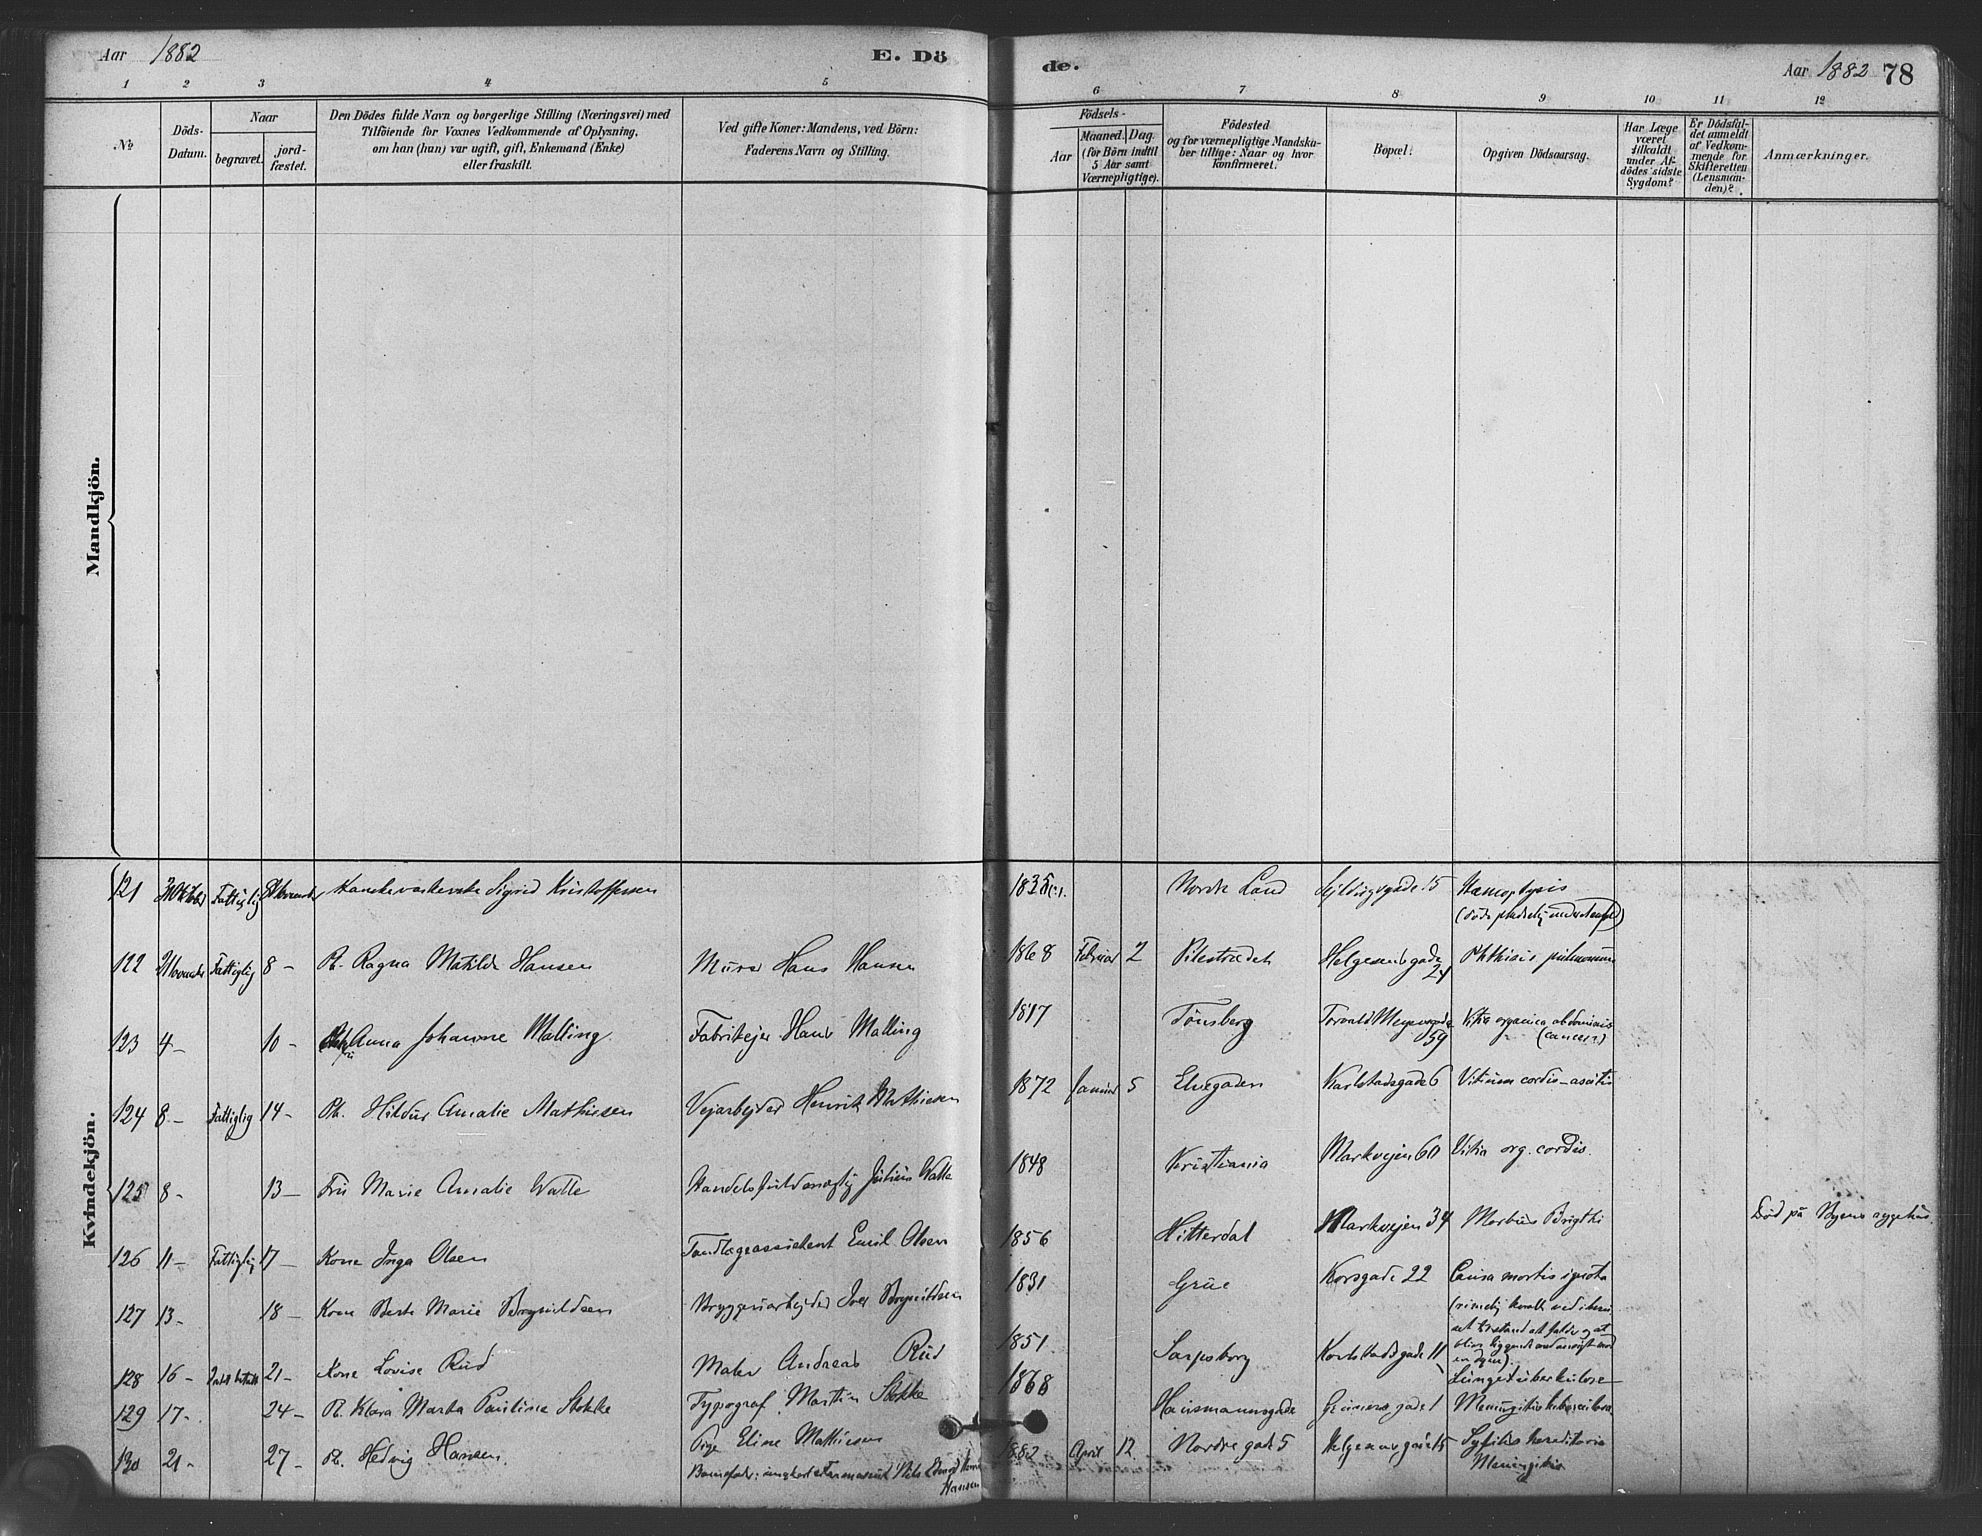 Aar 1882
E. Dö
de.
Aar 1882 78
1 2 3 4 5
6 7 8 9 10 11 12
No
Döds-
Datum.
Naar
begravet.
jord-
fæstet.
Den Dödes fulde Navn og borgerlige Stilling (Næringsvei) med
Tilföiende for Voxnes Vedkommende af Oplysning,
om han (hun) var ugift, gift, Enkemand (Enke)
eller fraskilt.
Ved gifte Koner: Mandens, ved Börn:
Faderens Navn og Stilling.
Födsels-
Aar
Maaned. Dag.
(for Börn indtil
5 Aar samt
Værnepligtige).
Födested
og for værnepligtige Mandska-
ber tillige: Naar og hvor
konfirmeret.
Bopæl:
Opgiven Dödsaarsag.
Har Læge
været
tilkaldt
under Af-
dödes sidste
Sygdom?
Er Dödsfal-
det anmeldt
af Vedkom-
mende for
Skifteretten
(Lensman-
den)?
Anmærkninger.
Mandkjön.
Kvindekjön.
121 Fattiglig Sigrid Kristoffersen Nordre Land 15 Hæmoptysis
122 Fattiglig 8 - Pt. Ragna Matilde Hansen Murer Hans Hansen 1868 Februar 2 Pilestrædet Helgesensgade Phthisis pulmonum
24
123 4 - 10 - Anna Johanne Malling Fabrikejer Hans Malling 1817 Tönsberg Torvald Meyersgade Vitia organica abdominis
59 (cancer)
124 8 - Fattiglig 14 - Pt. Hildur Amalie Mathisen Vejarbejder Henrik Mathiesen 1872 Januar 5 Elvegaden Karlstadsgade 6 Vitium cordis - ascites
125 8 - 13 - Fru Marie Amalie Watle Handelsfuldmægtig Julius Watle 1848 Kristiania Markvejen 60 Vitia org. cordis.
126 11 - Fattiglig 17 - Kone Inga Olsen Tandlægeassistent Emil Olsen 1856 Hitterdal Markvejen 34 Morbus Brigthi Död på Byens sygehus.
127 13 - 18 - Kone Berte Marie Bryggeriarbejder Iver 1831 Grue Korsgade 22 Causa mortis ignota
128 16 - 21 - Kone Lovise Rud Maler Andreas Rud 1851 Sarpsborg Karlstadsgade 11 Lungetuberkulose
129 17 - 24 - Pt. Klara Marta Pauline Stokke Typograf Martin Stokke 1868 Hausmannsgade Grünersgade 1 Meningitis
130 21 - 27 - Pt. Hedvig Hansen. Pige Eline Mathiesen 1882 April 12 Nordregade 5 Helgesensgade 15 Syfilis hereditaria
Barnefader: ungkarl Nils Hansen Meningitis